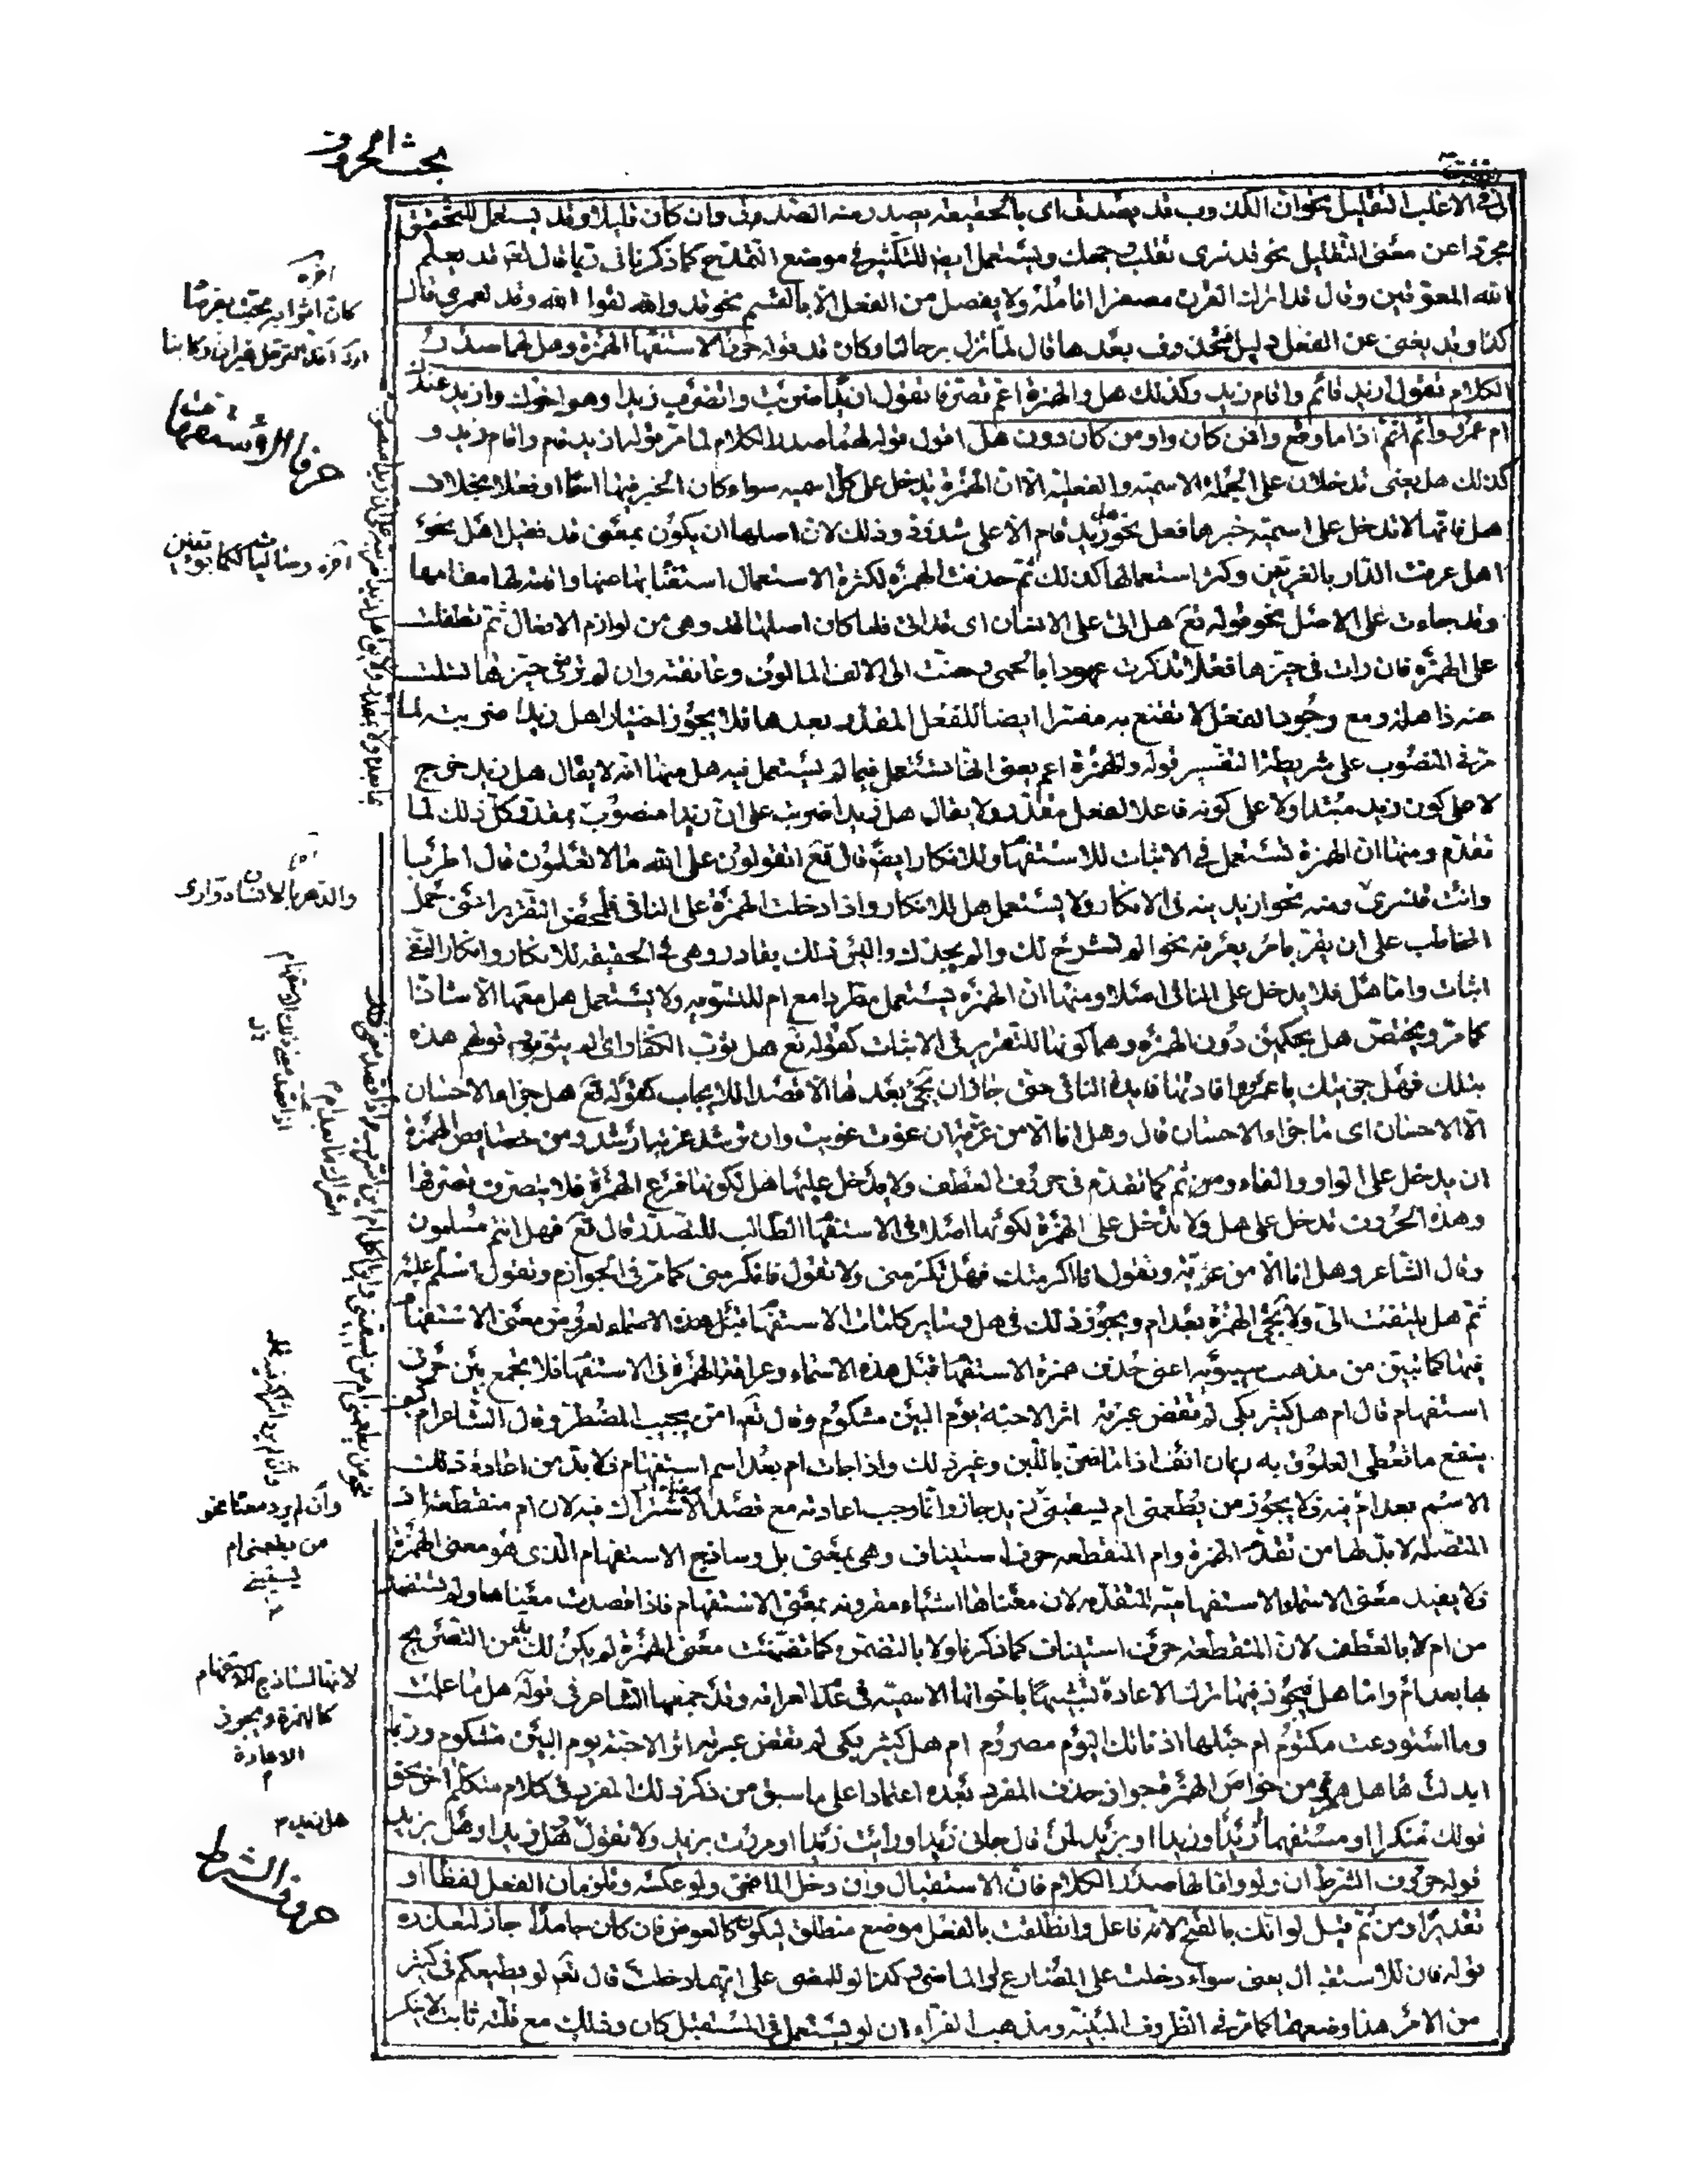 بحث الحروف
الى فى الاغلب التقليل نحو ان الكذوب قد يصدق اى بالحقيقة يصدر منه الصدق وان كان قليلا وقد تستعمل للتحقيق
مجردا عن معنى التقليل نحو قد نرى تقلب وجهك ويستعمل ايضا للتكثير فى موضع التمدح كما ذكرنا فى ربما قال تعالى قد يعلم
الله المعوقين وقال قد اترك القرن مصفرا انامله ولا يفصل من الفعل الا بالقسم نحو قد والله لقوا الله وقد لعمرى قال
كذا وقد يغنى عن الفعل دليل فيحذف بعدها قال لما تزل برحالنا وكان قد قوله حرفا الاستفهام الهمزة وهل لهما صدر
الكلام تقول ازيد قائم واقام زيد وكذلك هل والهمزة اعم تصرفا تقول ازيدا ضربت واتضرب زيدا وهو اخوك وازيد عندك
ام عمرو واثم اذا ما وقع وافمن كان واومن كان دون هل اقول قوله لهما صدر الكلام لما مر قوله ازيد قائم واقام زيد و
كذلك هل يعنى تدخلان على الجملة الاسمية والفعلية الا ان الهمزة تدخل على كل اسمية سواء كان الخبر فيها اسما او فعلا بخلاف
هل فانها لا تدخل على اسمية خبرها فعل نحو هل زيد قام الا على شذوذ وذلك لان اصلها ان يكون بمعنى قد فقيل اهل نحو
اهل عرفت الدار بالغريين وكثر استعمالها كذلك ثم حذفت الهمزة لكثرة الاستعمال استغناء بها عنها واقامة لها مقامها
وقد جاءت على الاصل نحو قوله تع هل اتى على الانسان اى قد اتى فلما كان اصلها قد وهى من لوازم الافعال ثم تطفلت
على الهمزة فان رات فى حيزها فعلا تذكرت عهودا بالحمى وحنت الى الالف المألوف وعانقته وان لم تره فى حيزها تسلت
عنه ذاهلة ومع وجود الفعل لا تقنع به مفسرا ايضا للفعل المقدر بعدها فلا يجوز اختيارا هل زيدا ضربته لما
مر فى المنصوب على شريطة التفسير قوله والهمزة اعم يعنى انها تستعمل فيما لم تستعمل فيه هل منها انه لا يقال هل زيد خرج
لا على كون زيد مبتدا ولا على كونه فاعلا لفعل مقدر ولا يقال هل زيدا ضربت على ان زيدا منصوب بمقدر وكل ذلك لما
تقدم ومنها ان الهمزة تستعمل فى الاثبات للاستفهام وللانكار ايضا قال تع اتقولون على الله ما لا تعلمون قال اطربا
وانت قنسرى ومنه نحو ازيدنيه فى الانكار ولا يستعمل هل للانكار واذا دخلت الهمزة على النافى فلمحض التقرير اعنى حمل
المخاطب على ان يقر بامر يعرفه نحو الم نشرح لك والم يجدك واليس ذلك بقادر وهى فى الحقيقة للانكار وانكار النفى
اثبات واما هل فلا يدخل على النافى اصلا ومنها ان الهمزة يستعمل مطردا مع ام للتسوية ولا يستعمل هل معها الا شاذا
كما مر ويختص هل بحكمين دون الهمزة وهما كونها للتقرير فى الاثبات كقوله تع هل ثوب الكفار اى لم يثوبوا قولهم هذه
بتلك فهل جزيتك يا عمرو وافادتها فايدة النافى حتى جاز ان يجئ بعدها الا قصدا للايجاب كقوله تع هل جزاء الاحسان
الا الاحسان اى ما جزاء الاحسان قال وهل انا الا من غزية ان غوت غويت وان ترشد غزية ارشد ومن خصايص الهمزة
ان يدخل على الواو والفاء ومن ثم كما تقدم فى حروف العطف ولا يدخل عليها هل لكونها فرع الهمزة فلا يتصرف تصرفها
وهذه الحروف تدخل على هل ولا تدخل على الهمزة لكونها اصلا فى الاستفهام الطالب للتصدر قال تع فهل انتم مسلمون
وقال الشاعر وهل انا الا من غزية وتقول انا اكرمتك فهل تكرمنى ولا تقول فاتكرمنى كما مر فى الجوازم وتقول اسلم عليه
ثم هل يلتفت الى ولا تجئ الهمزة بعد ام ويجوز ذلك فى هل وساير كلمات الاستفهام قبل هذه الاسماء لعروض معنى الاستفهام
فيها كما تبين من مذهب سيبويه اعنى حذف همزة الاستفهام قبل هذه الاسماء وعراقة الهمزة فى الاستفهام فلا يجمع بين حرفى
استفهام قال ام هل كثير بكى لم تقض عبرته اثر الاحبة يوم البين مشكوم وقال تع امن يجيب المضطر وقال الشاعر ام كيف
ينفع ما تعطى العلوق به ريمان انف اذا ما ضن باللبن وغير ذلك واذا جاءت ام بعد اسم استفهام فلا بد من اعادة ذلك
الاسم بعد ام فلا يجوز من يطعمنى ام يسقينى ازيد جاز وانما وجب اعادته مع قصد الاشتراك فيه لان ام منقطعة اذ
المتصلة لا بد لها من تقدم الهمزة وام المنقطعة حرف استيناف وهى بمعنى بل وساذج الاستفهام الذى هو معنى الهمزة
فلا يفيد معنى الاسماء الاستفهامية المتقدمة لان معناها اشياء مقرونة بمعنى الاستفهام فاذا قصدت معناها ولم تستفد
من ام لا بالعطف لان المنقطعة حرف استيناف كما ذكرنا ولا بالتضمن كما تضمنت معنى الهمزة لم يكن لك بد من التصريح
بها بعد ام واما هل فيجوز فيها ترك الاعادة تشبيها باخواتها الاسمية فى عدم العراقة وقد جمعها الشاعر فى قوله هل ما علمت
وما استودعت مكتوم ام حبلها اذ نأتك اليوم مصروم ام هل كثير بكى لم تقض عبرته اثر الاحبة يوم البين مشكوم وربما
ابدلت هاء هل همزة ومن خواص الهمزة جواز حذف المفرد بعده اعتمادا على ما سبق من ذكر ذلك المفرد فى كلام متكلم اخر نحو
قولك منكرا او مستفهما ازيدا وزيدا او بزيد لمن قال جائنى زيد او رايت زيدا او مررت بزيد ولا تقول هل زيدا وهل بزيد
قوله حروف الشرط ان ولو واما لها صدر الكلام فان للاستقبال وان دخل الماضى ولو عكسه وتلزمان الفعل لفظا او
تقديرا ومن ثم قيل لو انك بالفتح لانه فاعل وانطلقت بالفعل موضع منطلق ليكون كالعوض فان كان جامدا جاز لتعذره
قوله فان للاستقبال يعنى سواء دخلت على المضارع او الماضى وكذا لو للمضى على ايهما دخلت قال تع لو يطيعكم فى كثير
من الامر هذا وضعهما كما مر فى الظروف المبنية ومذهب الفراء ان لو يستعمل فى المستقبل كان وذلك مع قلته ثابت لا ينكر
اخره
كان اثوابه مجت بفرصاد
اوله ازف الترحل غير ان ركابنا
حرفا الاستفهام
اخره وصاليات ككما يؤثفين
والدهر بالانسان دوارى
وان لم يرد معناه نحو
من يطعمنى ام
يسقينى
لانها لساذج الاستفهام
كالهمزة ويجوز
الاعادة
حروف الشرط